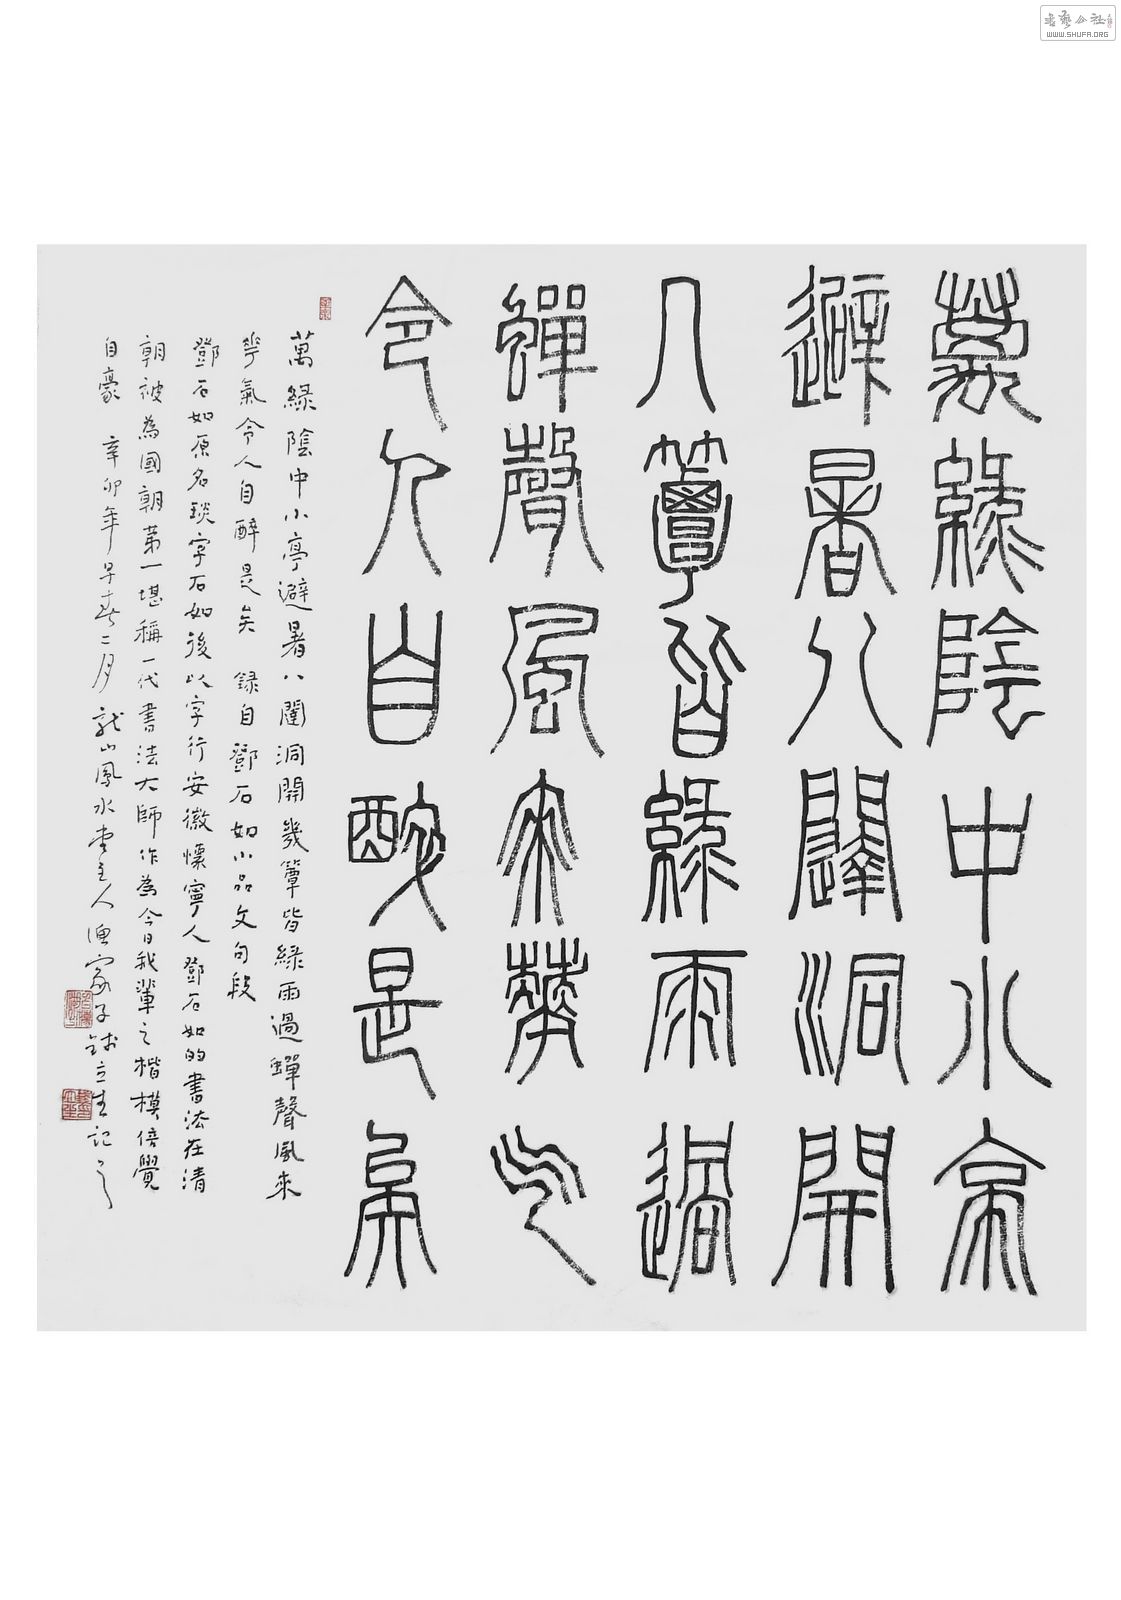 萬綠陰中小亭
避暑八闥洞開
几簟皆綠雨過
蟬聲風來華氣
令人自醉是矣
萬綠陰中小亭避暑八闥洞開幾簟皆綠雨過蟬聲風來
華氣令人自醉是矣 録自鄧石如小品文句段
鄧石如原名琰字石如後以字行安徽懷寧人鄧石如的書法在清
朝被為國朝第一堪稱一代書法大師作為今日我輩之楷模倍覺
自豪 辛卯年早春二月龍山鳳水堂主人漁家子立生記之
WWW.SHUFA.ORG